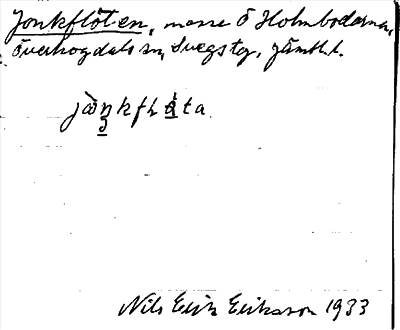 Jonkflöten, masse Ö Holmbodarna,
Överhogdals sn, Svegs tg, Jämtl. l.
Nils Erik Eriksson 1933